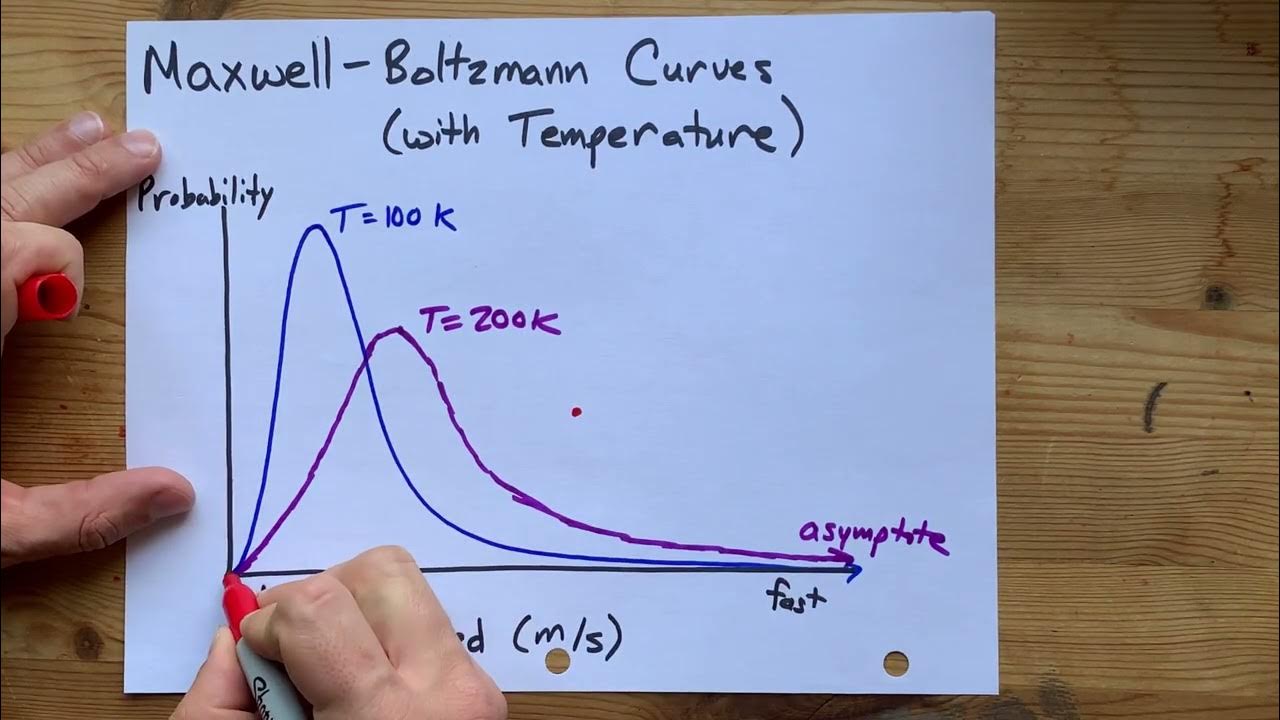 Maxwell-Boltzmann Curves
(with Temperature)
Probability
T=100 K
T=200K
asymptote
fast
(m/s)